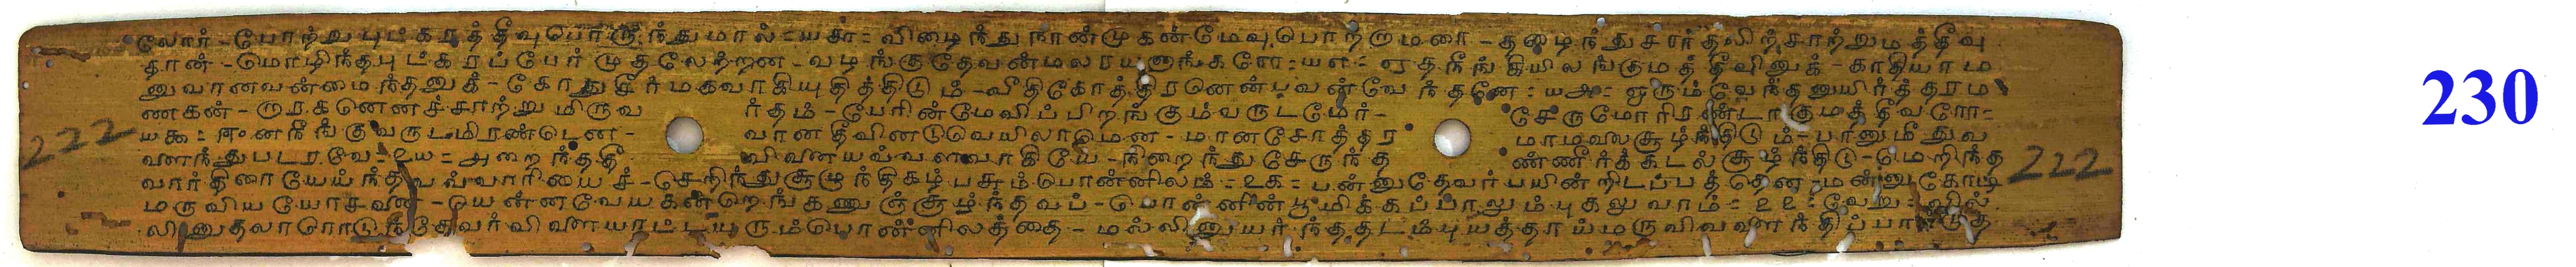 லோர் - போற்று புட்கரத்தீவு பொருந்துமால் = யசு = விழைந்து நான்முகன் மேவு பொற்றாமரை - தழைந்து சார்தலிற் சாற்றுமத்தீவு
தான் - மொழிந்த புட்கரப்பேர் முதலேற்றன - வழங்கு தேவன் மலரயனுங்கரோ = யஎ = ஏதநீங்கியிலங்குமத்தீவினுக் - காதியாம
னுவானவன் மைந்தனுக் - கோது சீர் மகவாகியுதித்திடும் - வீதிகோத்திரனென்பவன் வேந்தனே = யஅ = ஒரும் வேந்தனுயிர்த்தரம
ணகன் - ரகனெனச் சாற்றுமிருவ ர்தம் - பேரின் மேவிப் பிறங்கும் வருடமோ - சேருமோரிரண்டாகுமத்தீவரோ =
யகூ = ஈனநீங்கு வருடமிரண்டென - வானதீவினடுவெயிலாமென - மானசோத்தர மாமலை சூழ்ந்திடும் - பானுமீதுவ
ளைந்து படரவே = உய = அறைந்ததீ விளையவ்வளவாகியே - நிறைந்து சேருந்த ண்ணீர்க்கடல் சூழ்ந்திடு - மெறிந்த
வார்திரையேய்ந்தவவ்வாரியைச் - செறிந்து சூழுந்திகழ் பசும்பொன்னிலம் = உக = பன்னு தேவர் பயின்றிடப்பத்தென - மன்னு கோடி
மருவிய யோசனை - யென்னவேயகன்றெங்கணுஞ் சூழ்ந்தவப் - பொன்னின் பூமிக்கப்பாலும் புகலுவாம் = உஉ = வேறு = வில்
லினுதலாரொடுந்தேவர் விளையாட்டயரும் பொன்னிலத்தை - மல்லினுயர்ந்த தடம்புயத்தாய் மருவி வளைந்திப்பா
222
222
230